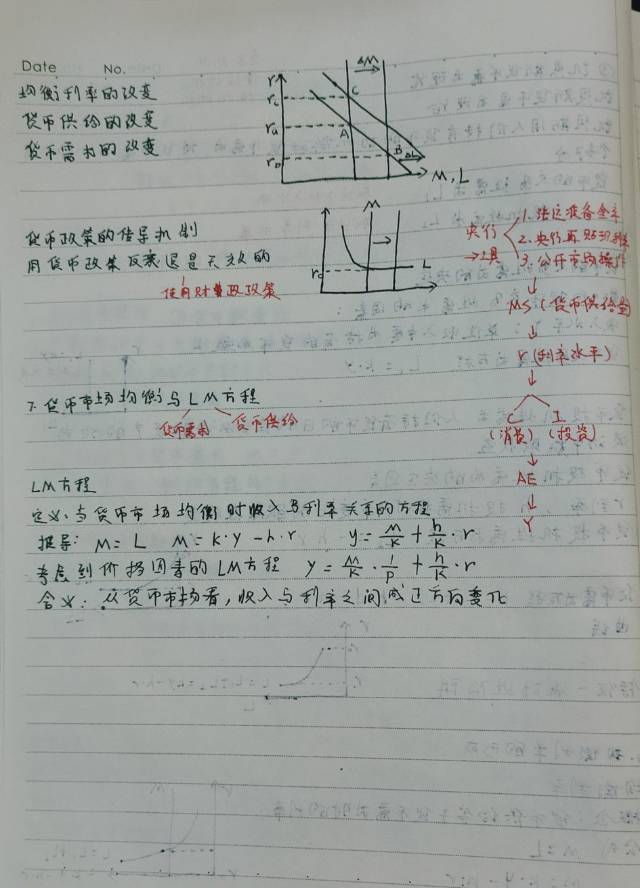 Date No.
均衡利率的改变
货币供给的改变
货币需求的改变
r
rc
ra
rb
ΔM
C
A
B
ΔL
M,L
货币政策的传导机制
用货币政策反衰退是无效的
使用财政政策
r
M
L
r
央行
→工具
1.法定准备金率
2.央行再贴现利率
3.公开市场操作
↓
MS(货币供给量)
↓
r(利率水平)
↓
C I
(消费) (投资)
↓
AE
↓
Y
7.货币市场均衡与LM方程
货币需求 货币供给
LM方程
定义:与货币市场均衡时收入与利率关系的方程
推导: M=L M=k·y-h·r y=m/k+h/k·r
考虑到价格因素的LM方程 y=m/k·1/p+h/k·r
含义:从货币市场看,收入与利率之间成正方向变化